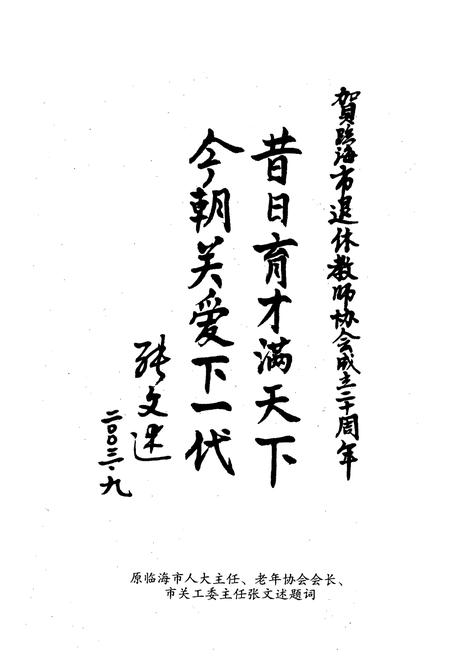 賀临海市退休教师协会成立二十周年
昔日育才满天下
今朝关爱下一代
张文述
二〇〇三·九
原临海市人大主任、老年协会会长、
市关工委主任张文述题词